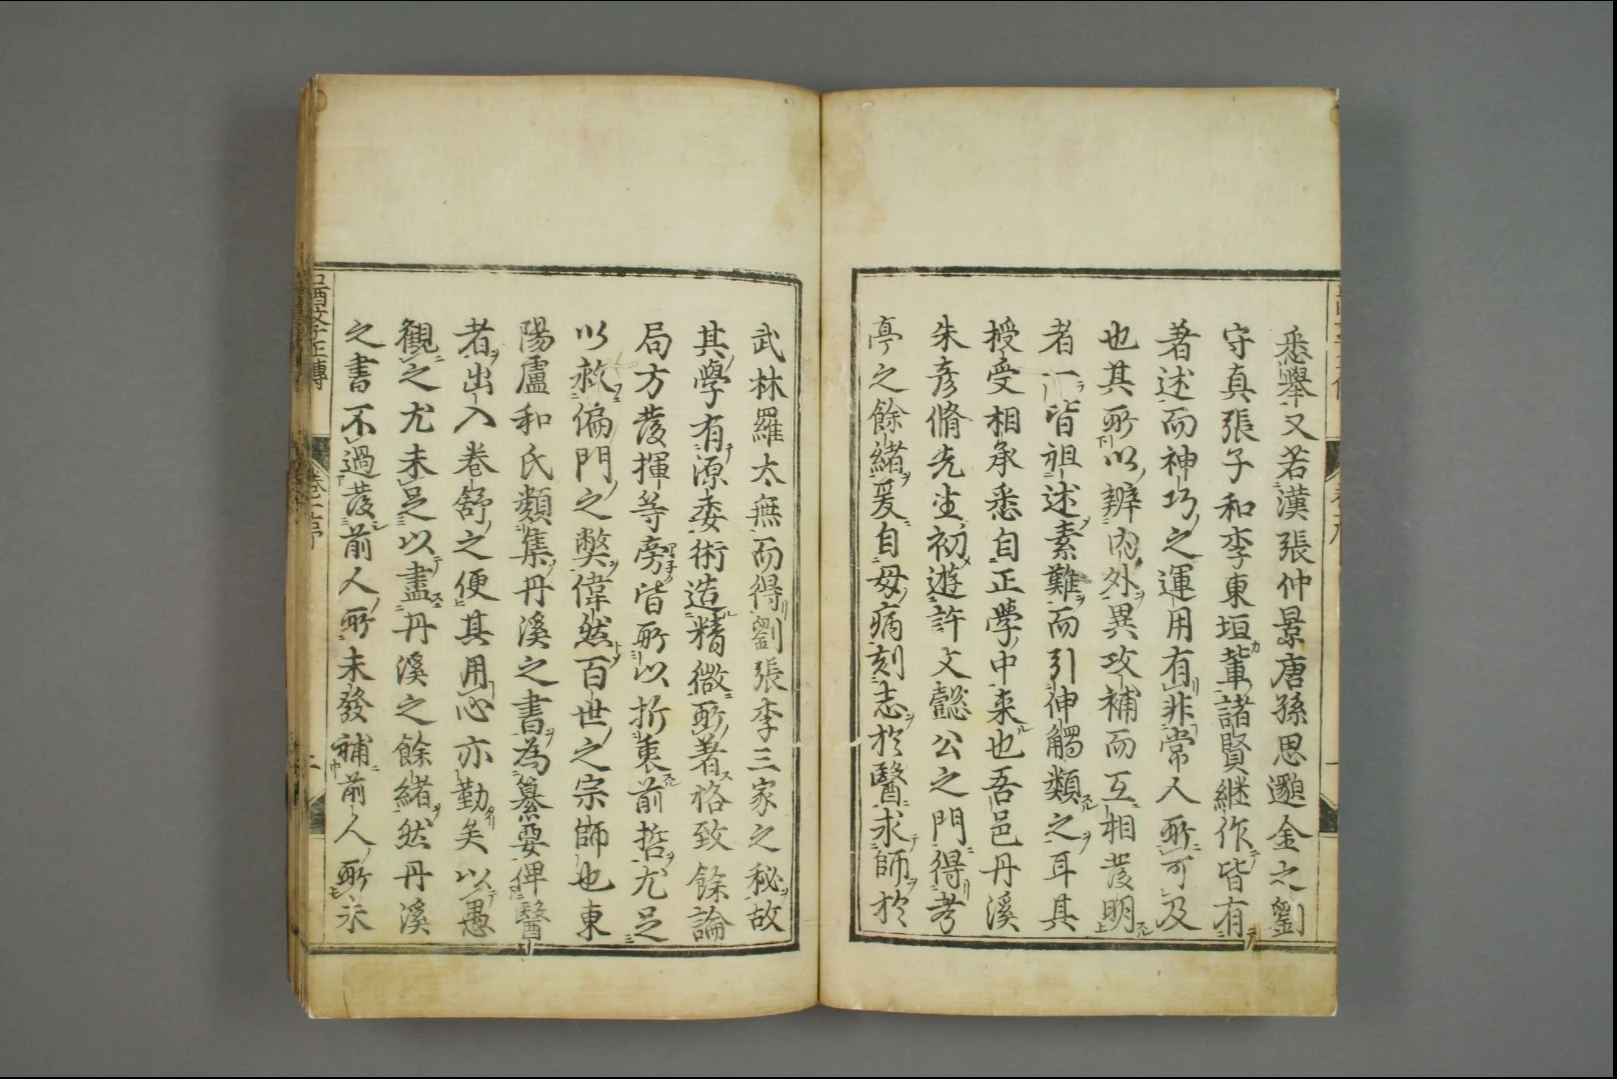 悉舉又若漢張仲景唐孫思邈金之劉
守真張子和李東垣軰諸賢継作皆有
著述而神巧之運用有非常人所可及
也其所以辨内外異攻補而互相發明
者一皆祖述素難而引伸觸類之耳其
授受相承悉自正學中来也吾邑丹溪
朱彦脩先生初遊許文懿公之門得考
亭之餘緒爰自母病刻志於醫求師於
武林羅太無而得劉張李三家之秘故
其學有源委術造精微所著格致餘論
局方發揮等旁皆所以折衷前哲尤足
以救偏門之獘偉然百世之宗師也東
陽盧和氏類集丹溪之書為纂要俾醫
者出入卷舒之便其用心亦勤矣以愚
觀之尤未足以盡丹溪之餘緒然丹溪
之書不過發前人所未發補前人所未
醫學正傳
卷之一序
二